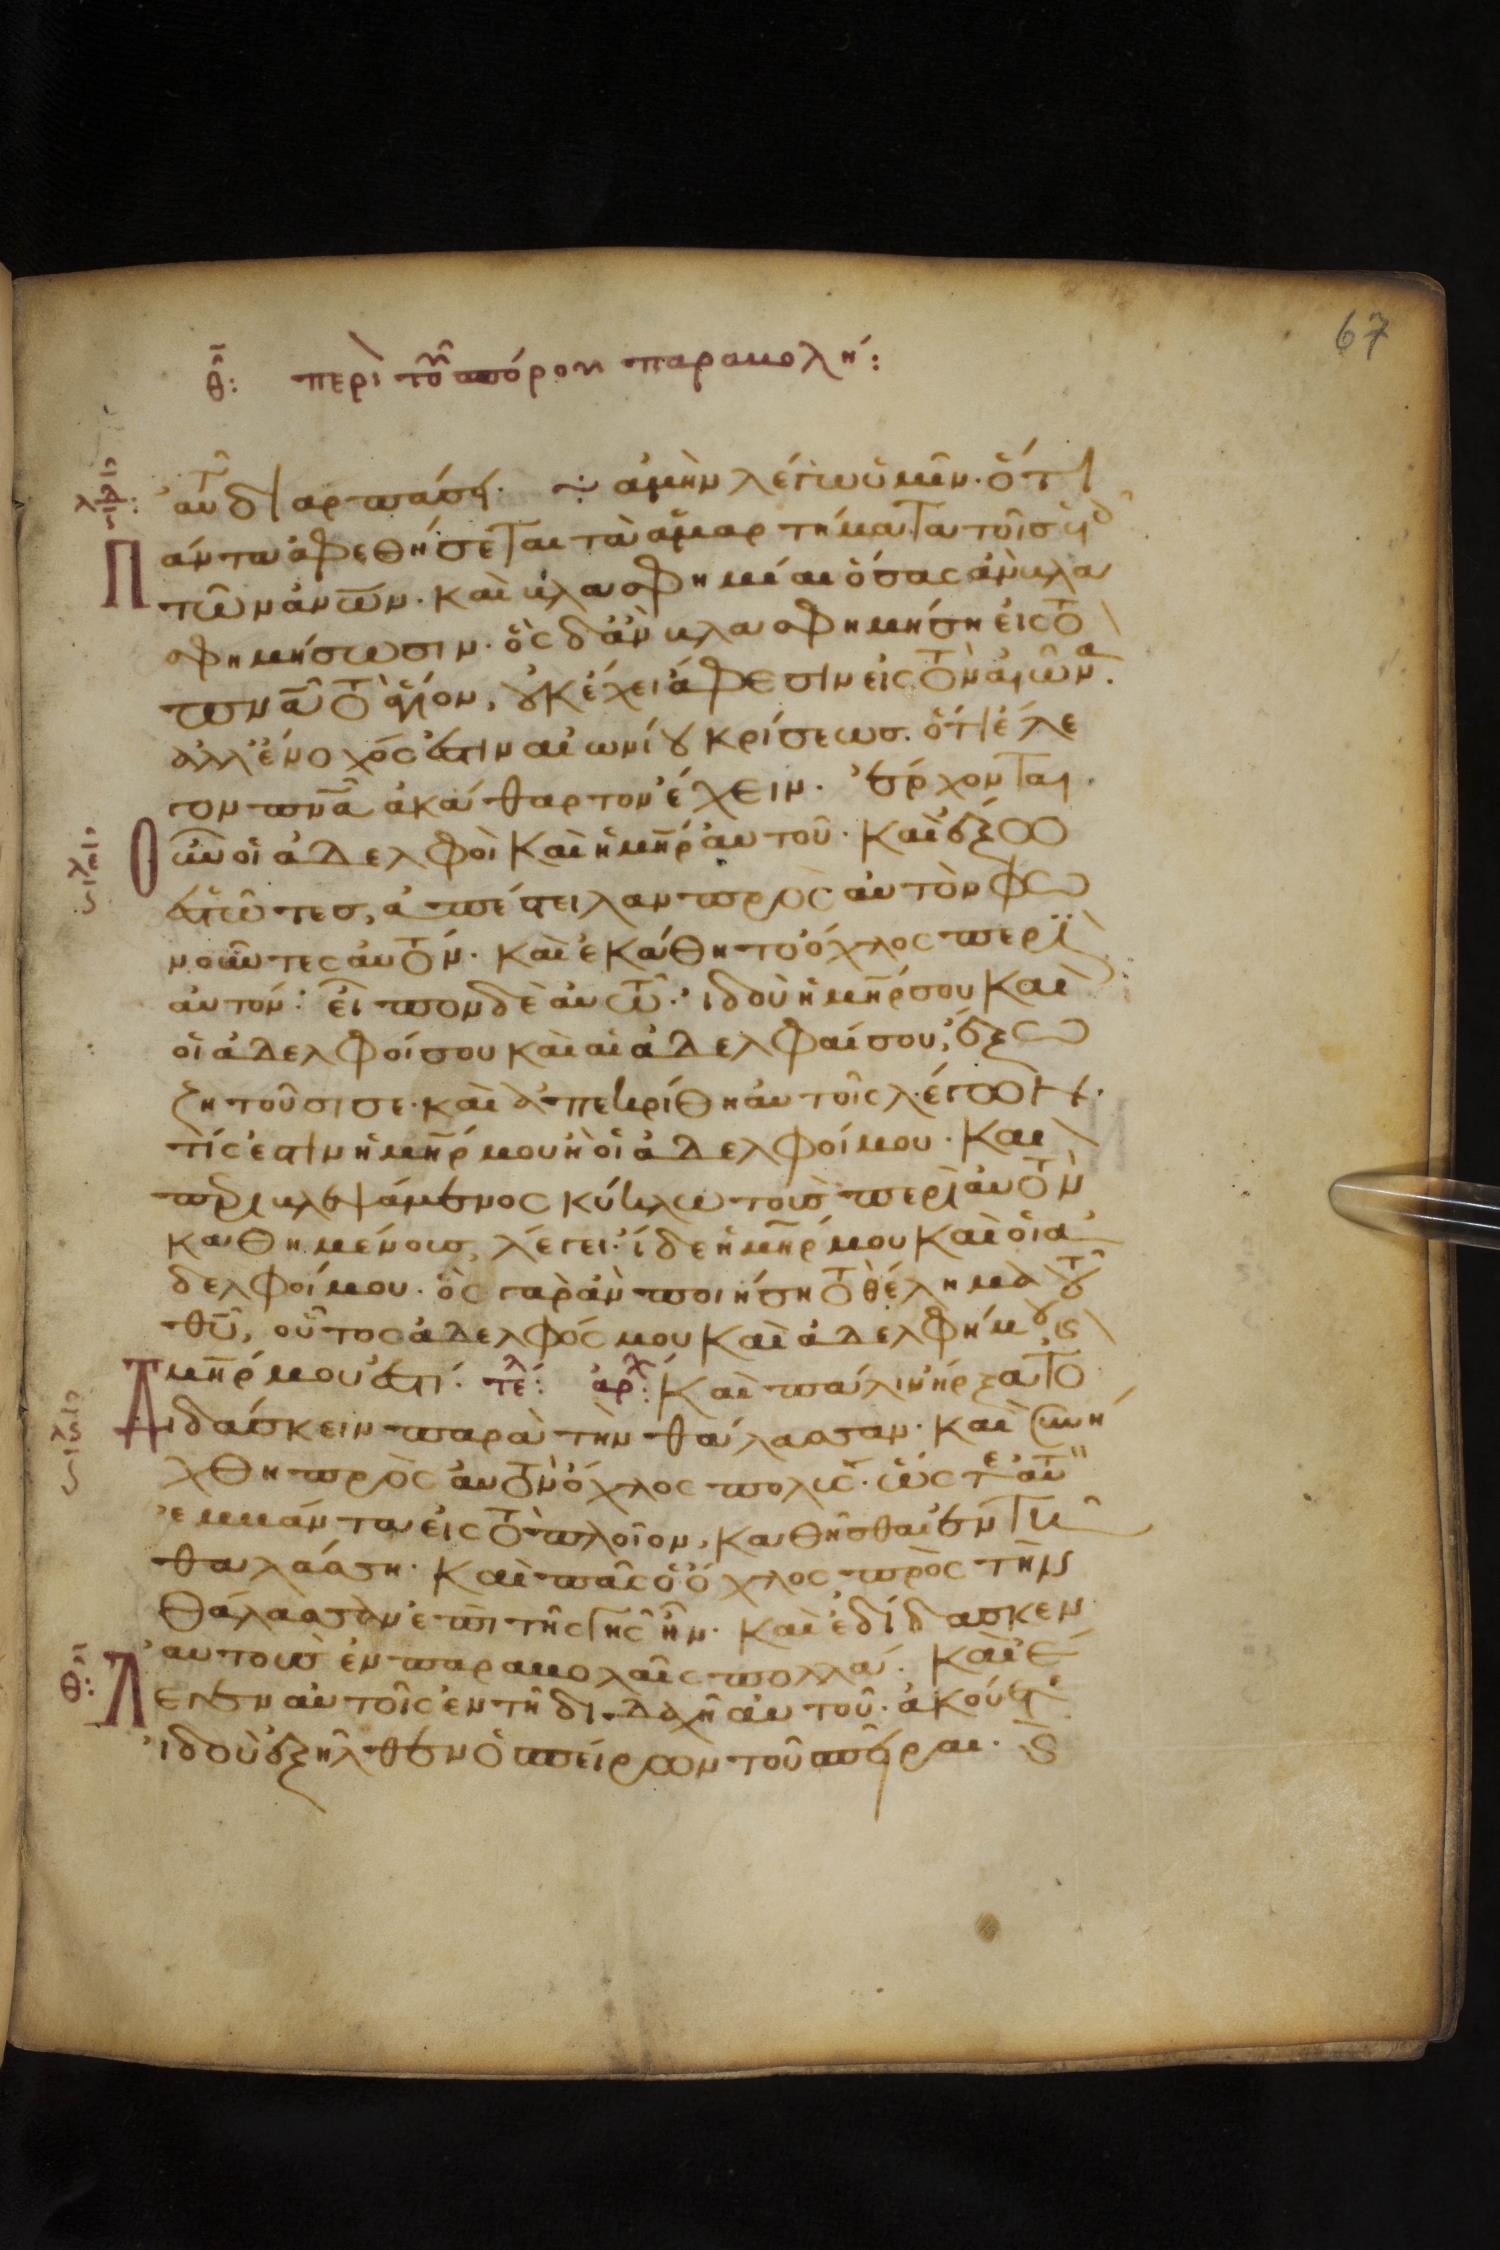 67
θ̄: περὶ τοῦ σπόρου παραβολή:
λδ̄: αὐτοῦ διαρπάσει. ἀμὴν λέγω ὑμῖν. ὅτι
Πάντα ἀφεθήσεται τὰ ἁμαρτήματα τοῖς υἱοῖς
τῶν ἀνω̅ν. καὶ βλασφημίαι ὅσας ἀν βλα
σφημήσωσιν. ὃς δ' ἂν βλασφημήση εἰς τὸ
πν̅α τὸ ἅγιον, οὐκ ἔχει ἄφεσιν εἰς τὸν αἰῶνα.
ἀλλ' ἔνοχός ἐστιν αἰωνίου κρίσεως. ὅτι ἔλε
γον πν̅α ἀκάθαρτον ἔχειν. ἔρχονται
Οὖν οἱ ἀδελφοὶ καὶ ἡ μη̅ρ αὐτοῦ. καὶ ἔξω
ἑστῶτες, ἀπέστειλαν πρὸς αὐτὸν φω
νοῦντες αὐτόν. καὶ ἐκάθητο ὄχλος περὶ
αὐτόν. εἶπον δὲ αὐτῶ. ἰδοὺ ἡ μη̅ρ σου καὶ
οἱ ἀδελφοί σου καὶ αἱ ἀδελφαί σου, ἔξω
ζητοῦσι σε. καὶ ἀπεκρίθη αὐτοῖς λέγων.
τίς ἐστιν ἡ μη̅ρ μου ἢ οἱ ἀδελφοί μου. Καὶ
περιβλεψάμενος κύκλω τοὺς περὶ αὐτὸν
καθημένους, λέγει. ἴδε ἡ μη̅ρ μου καὶ οἱ ἀ
δελφοί μου. ὃς γὰρ ἀν ποιήση τὸ θέλημα τοῦ
θυ̅, οὗτος ἀδελφός μου καὶ ἀδελφή μου κ
μη̅ρ μου ἐστί. τέλ: ἀρχ: Καὶ πάλιν ἤρξατο
Διδάσκειν παρὰ τὴν θάλασσαν. καὶ συνή
χθη πρὸς αὐτὸν ὄχλος πολύς. ὥστε αὐτὸν
ἐμβάντα εἰς τὸ πλοῖον, καθῆσθαι ἐν τῆ
θαλάσση. καὶ πᾶς ὁ ὄχλος πρὸς τὴν
θάλασσαν ἐπὶ τῆς γῆς ἦν. καὶ ἐδίδασκεν
αὐτοὺς ἐν παραβολαῖς πολλά. καὶ ἔ
θ̄: Λεγεν αὐτοῖς ἐν τῆ διδαχῆ αὐτοῦ. ἀκούετε
ἰδοὺ ἐξῆλθεν ὁ σπείρων τοῦ σπεῖραι. κ